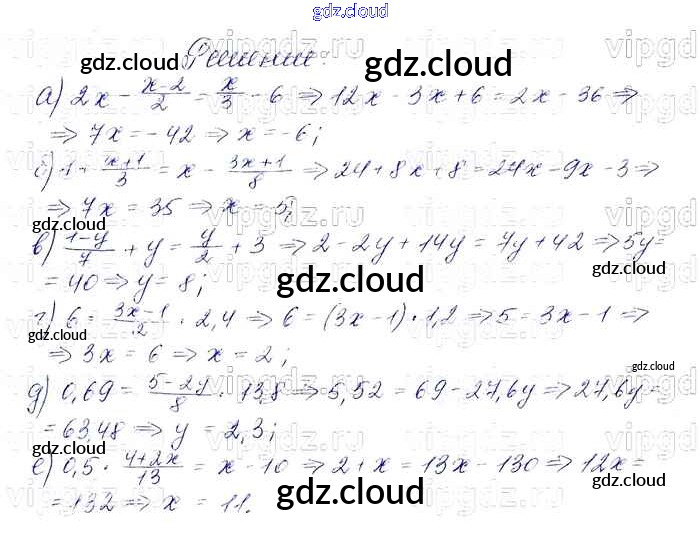 gdz.cloud
Решение:
gdz.cloud
gdz.cloud
а) 2x - (x-2)/2 = x/3 - 6 => 12x - 3x + 6 = 2x - 36 =>
=> 7x = -42 => x = -6;
б) 1 + (x+1)/3 = x - (3x+1)/8 => 24 + 8x + 8 = 24x - 9x - 3 =>
=> 7x = 35 => x = 5;
gdz.cloud
в) (1-y)/7 + y = y/2 + 3 => 2 - 2y + 14y = 7y + 42 => 5y =
= 40 => y = 8;
gdz.cloud
gdz.cloud
г) 6 = (3x-1)/2 · 2,4 => 6 = (3x-1)·1,2 => 5 = 3x - 1 =>
gdz.cloud
=> 3x = 6 => x = 2;
gdz.cloud
д) 0,69 = (5-2y)/8 · 1,38 => 5,52 = 69 - 27,6y => 27,6y =
= 63,48 => y = 2,3;
gdz.cloud
е) 0,5 · (4+2x)/13 = x - 10 => 2 + x = 13x - 130 => 12x =
= 132 => x = 11.
gdz.cloud
gdz.cloud